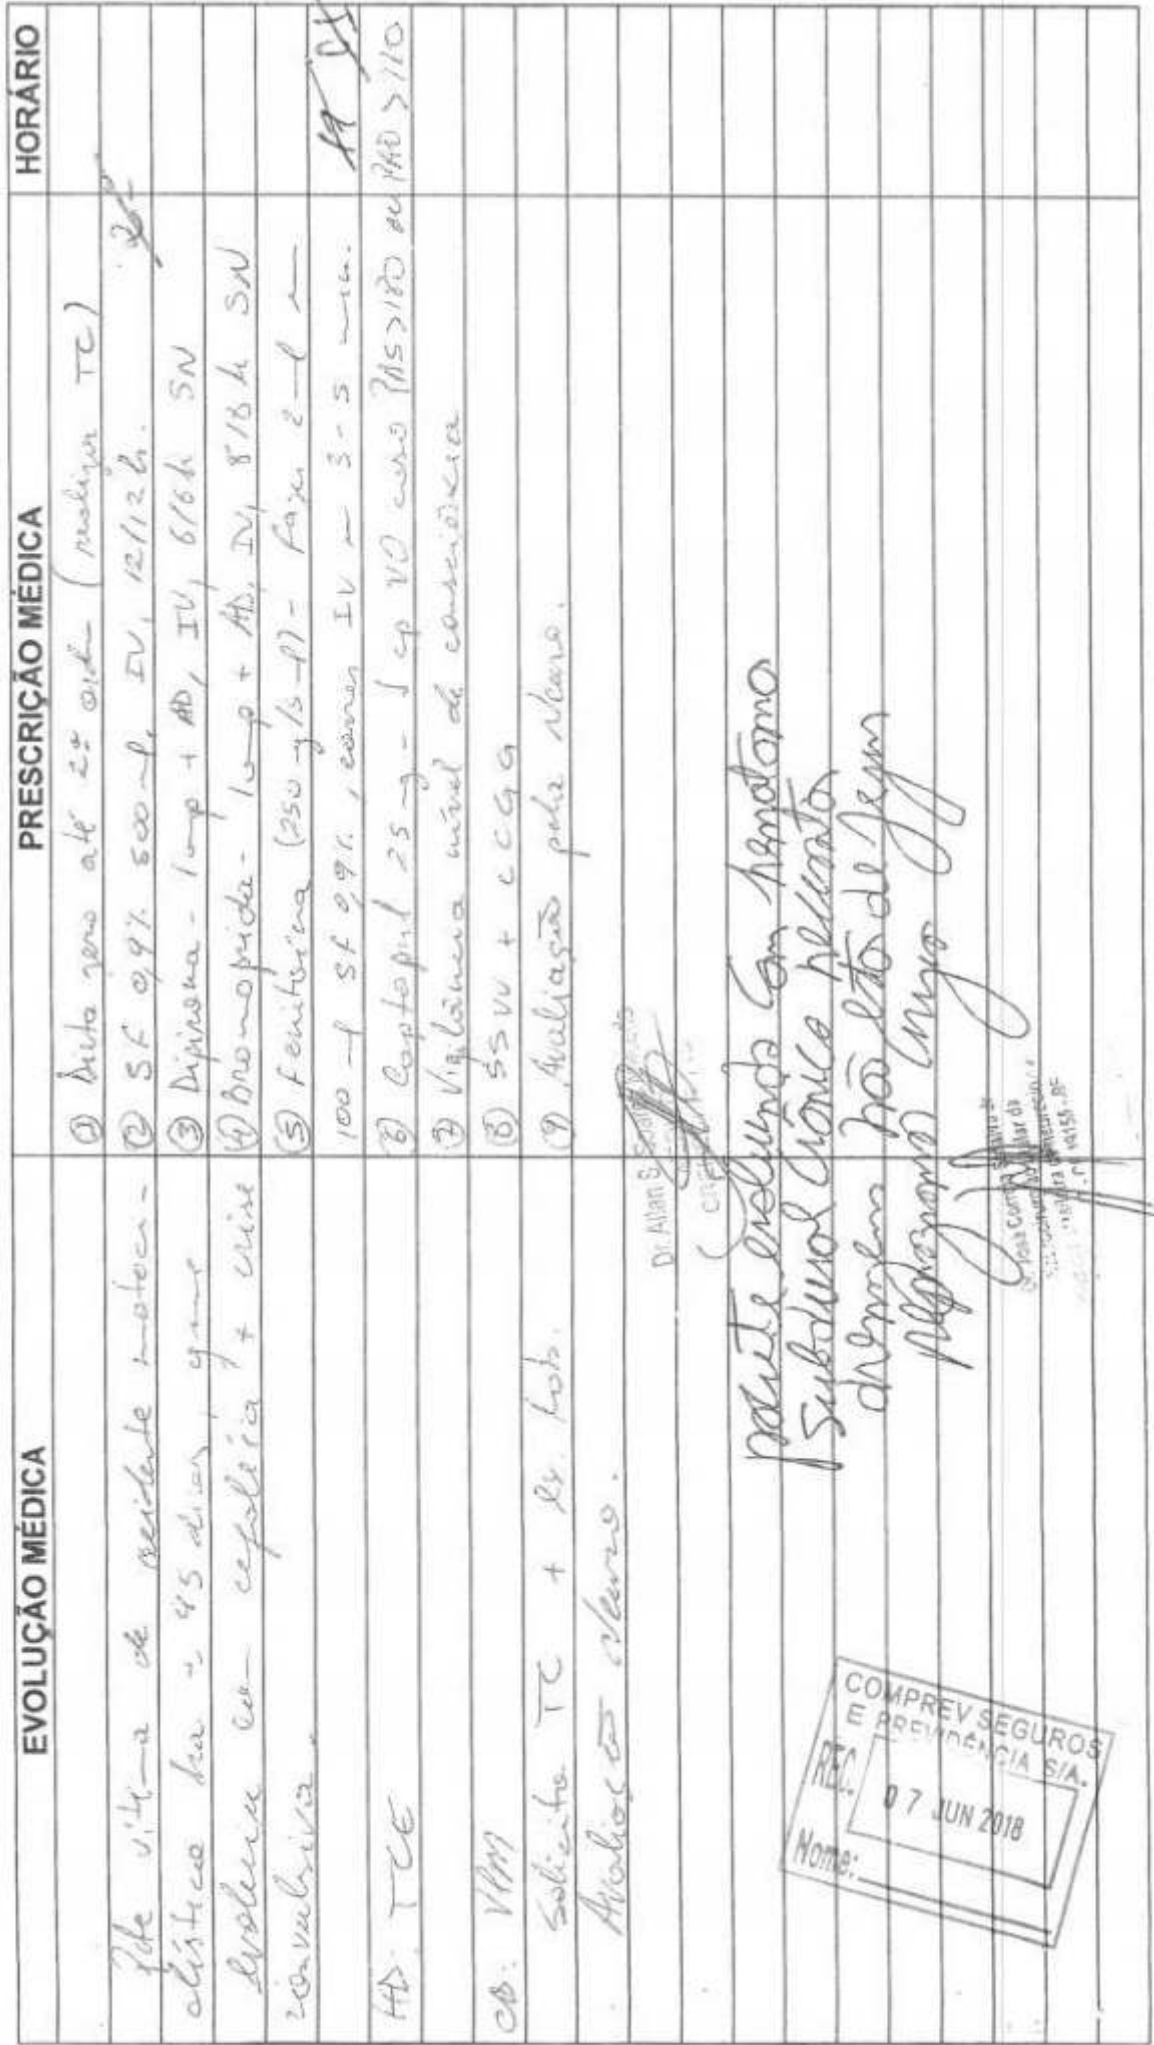 EVOLUÇÃO MÉDICA
Pcte vítima de acidente motoci-
clístico há ± 45 dias, que
evoluiu com cefaléia + crise
convulsiva
HD: TCE
CD: VPM
Solicito TC + Ex. Lab.
Avaliação Neuro.
PRESCRIÇÃO MÉDICA
HORÁRIO
① Dieta zero até 2ª ordem (realizar TC)
② SF 0,9% 500 ml, IV, 12/12 h.
③ Dipirona - 1 amp + AD, IV, 6/6 h SN
④ Bromoprida - 1 amp + AD, IV, 8/8 h SN
⑤ Fenitoína (250 mg/5 ml) - Fazer 2 ml em
100 ml SF 0,9%, correr IV em 3-5 min.
⑥ Captopril 25 mg - 1 cp VO caso PAS>180 ou PAD>110
⑦ Vigilância nível de consciência
⑧ SSVV + CCGG
⑨ Avaliação pela Neuro.
Dr. Allan S.
paciente evoluindo com hematoma
subdural crônico necessita
drenagem não estão de jejum
COMPREV SEGUROS
E PREVIDÊNCIA S/A.
REC.
07 JUN 2018
Nome: